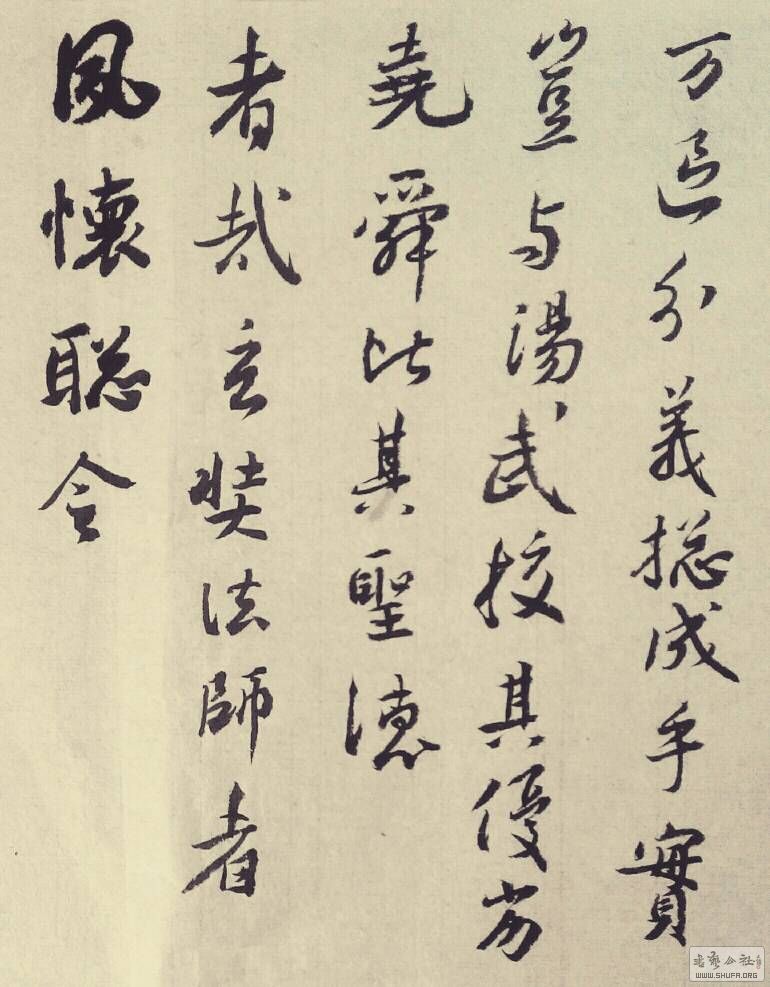 万區分義揔成乎實
豈与湯武校其優劣
堯舜比其聖德
者哉玄奘法師者
夙懷聡令
書藝公社
WWW.SHUFA.ORG